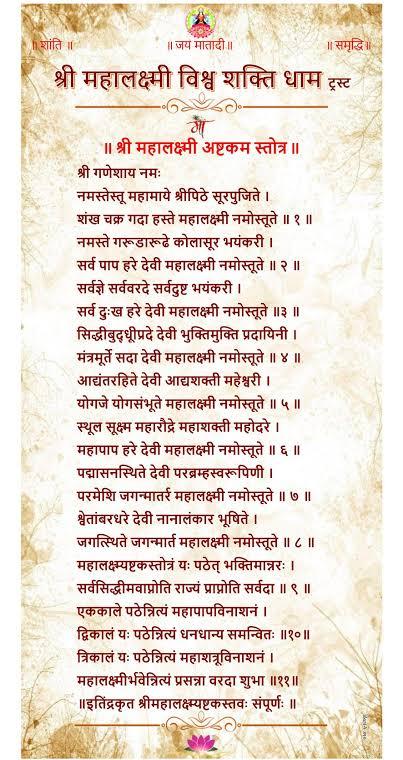 ॥ शांति ॥ ॥ जय मातादी॥ ॥ समृद्धि॥
श्री महालक्ष्मी विश्व शक्ति धाम ट्रस्ट
माँ
॥ श्री महालक्ष्मी अष्टकम स्तोत्र ॥
श्री गणेशाय नमः
नमस्तेस्तू महामाये श्रीपिठे सूरपुजिते ।
शंख चक्र गदा हस्ते महालक्ष्मी नमोस्तूते ॥ १ ॥
नमस्ते गरूडारूढे कोलासूर भयंकरी ।
सर्व पाप हरे देवी महालक्ष्मी नमोस्तूते ॥ २ ॥
सर्वज्ञे सर्ववरदे सर्वदुष्ट भयंकरी ।
सर्व दुःख हरे देवी महालक्ष्मी नमोस्तूते ॥३ ॥
सिद्धीबुद्धूीप्रदे देवी भुक्तिमुक्ति प्रदायिनी ।
मंत्रमूर्ते सदा देवी महालक्ष्मी नमोस्तूते ॥ ४ ॥
आद्यंतरहिते देवी आद्यशक्ती महेश्वरी ।
योगजे योगसंभूते महालक्ष्मी नमोस्तूते ॥ ५ ॥
स्थूल सूक्ष्म महारौद्रे महाशक्ती महोदरे ।
महापाप हरे देवी महालक्ष्मी नमोस्तूते ॥ ६ ॥
पद्मासनस्थिते देवी परब्रम्हस्वरूपिणी ।
परमेशि जगन्मातर्र महालक्ष्मी नमोस्तूते ॥ ७ ॥
श्वेतांबरधरे देवी नानालंकार भूषिते ।
जगत्स्थिते जगन्मार्त महालक्ष्मी नमोस्तूते ॥ ८ ॥
महालक्ष्म्यष्टकस्तोत्रं यः पठेत् भक्तिमान्नरः ।
सर्वसिद्धीमवाप्नोति राज्यं प्राप्नोति सर्वदा ॥ ९ ॥
एककाले पठेन्नित्यं महापापविनाशनं ।
द्विकालं यः पठेन्नित्यं धनधान्य समन्वितः ॥१०॥
त्रिकालं यः पठेन्नित्यं महाशत्रूविनाशनं ।
महालक्ष्मीर्भवेन्नित्यं प्रसन्ना वरदा शुभा ॥११॥
॥इतिंद्रकृत श्रीमहालक्ष्म्यष्टकस्तवः संपूर्णः ॥